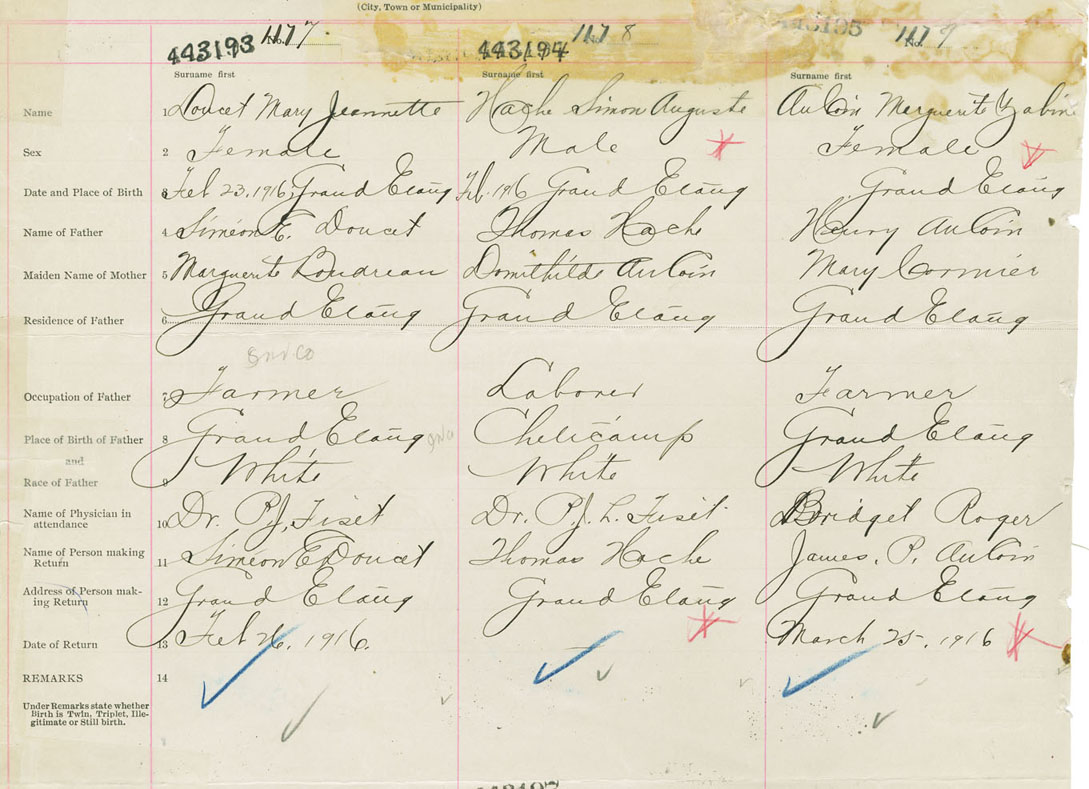 (City, Town or Municipality)
443193 No. 1177 443194 No. 1178 443195 No. 1179
Surname first Surname first Surname first
Name 1 Doucet Mary Jeannette Hache Simon Auguste AuCoin Marguerite
Sex 2 Female Male Female
Date and Place of Birth 3 Feb 23, 1916, Grand Etang Feb. 1916 Grand Etang Grand Etang
Name of Father 4 Simeon E. Doucet Thomas Hache Henry AuCoin
Maiden Name of Mother 5 Marguerite Boudreau Domithilde AuCoin Mary Cormier
Residence of Father 6 Grand Etang Grand Etang Grand Etang
Occupation of Father 7 Farmer Laborer Farmer
Place of Birth of Father 8 Grand Etang Cheticamp Grand Etang
and
Race of Father 9 White White White
Name of Physician in
attendance 10 Dr. P.J. Fiset Dr. P.J. L. Fiset Bridget Roger
Name of Person making
Return 11 Simeon E Doucet Thomas Hache James. P. AuCoin
Address of Person mak-
ing Return 12 Grand Etang Grand Etang Grand Etang
Date of Return 13 Feb 26, 1916. March 25, 1916
REMARKS 14
Under Remarks state whether
Birth is Twin, Triplet, Ille-
gitimate or Still birth.